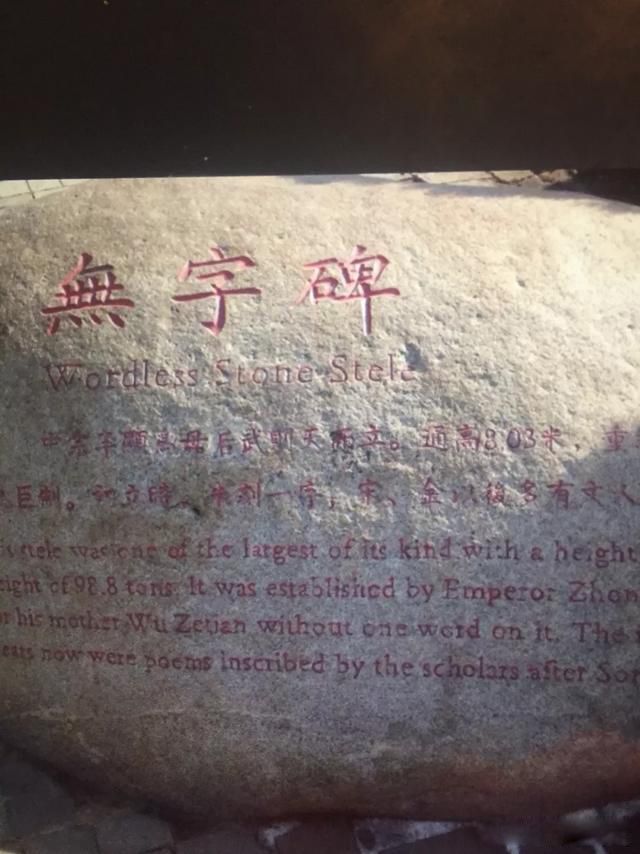 無字碑
Wordless Stone Stele
中宗李顯為母后武則天而立。通高8.03米，重
巨制。初立時，未刻一字，宋、金以後多有文人
stele was one of the largest of its kind with a height
eight of 98.8 tons. It was established by Emperor Zhon
or his mother, Wu Zetian without one word on it. The
ears now were poems inscribed by the scholars after Son